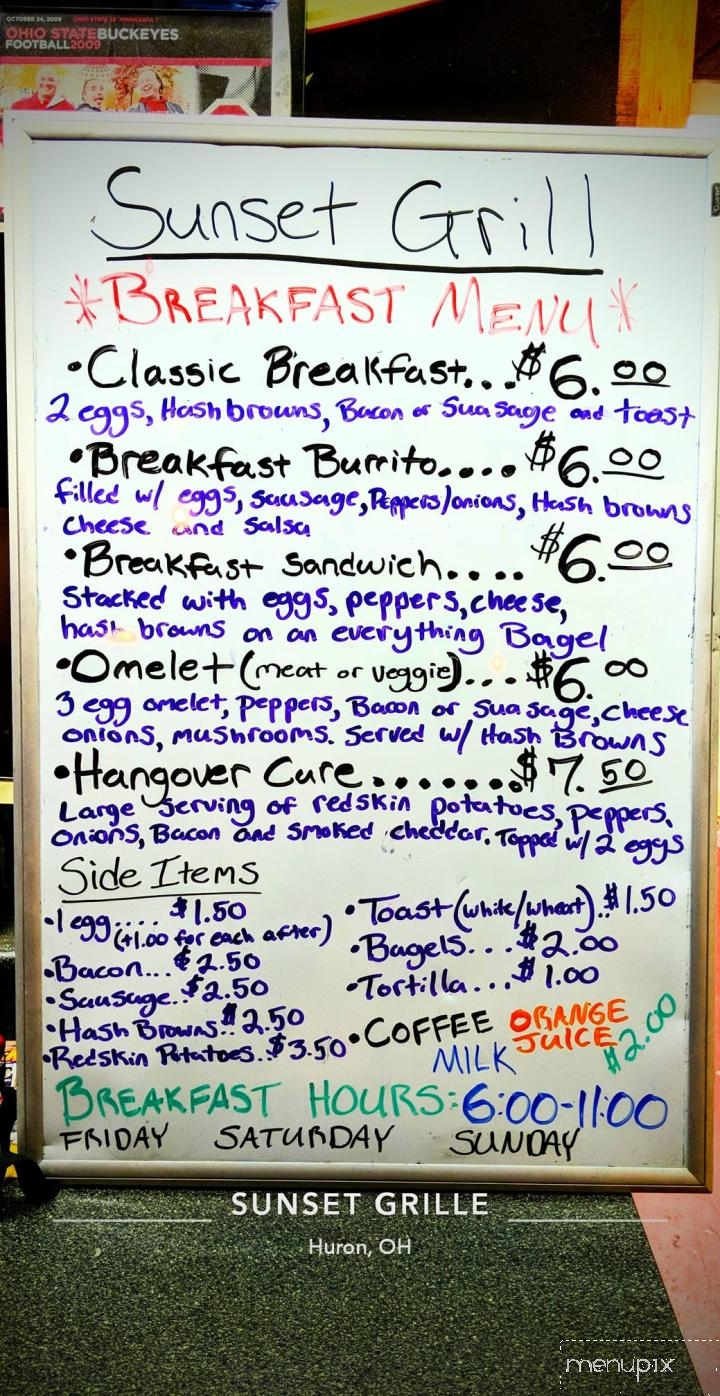 OCTOBER 24, 2009 OHIO STATE 38 MINNESOTA 7
OHIO STATE BUCKEYES
FOOTBALL 2009
Sunset Grill
*BREAKFAST MENU*
•Classic Breakfast...$6.00
2 eggs, Hashbrowns, Bacon or Suasage and toast
•Breakfast Burrito....$6.00
filled w/ eggs, sausage, Peppers/onions, Hash browns
cheese and salsa
•Breakfast Sandwich....$6.00
Stacked with eggs, peppers, cheese,
hash browns on an everything Bagel
•Omelet (meat or veggie)...$6.00
3 egg omelet, peppers, Bacon or suasage, cheese
onions, mushrooms. Served w/ Hash Browns
•Hangover Cure.......$7.50
Large serving of redskin potatoes, peppers,
onions, Bacon and smoked cheddar. Topped w/ 2 eggs
Side Items
•1 egg.... $1.50
(+1.00 for each after)
•Bacon...$2.50
•Sausage..$2.50
•Hash Browns..$2.50
•Redskin Potatoes..$3.50
•Toast (white/wheat)..$1.50
•Bagels...$2.00
•Tortilla...$1.00
•COFFEE ORANGE
JUICE
MILK $2.00
BREAKFAST HOURS: 6:00-11:00
FRIDAY SATURDAY SUNDAY
SUNSET GRILLE
Huron, OH
menupix